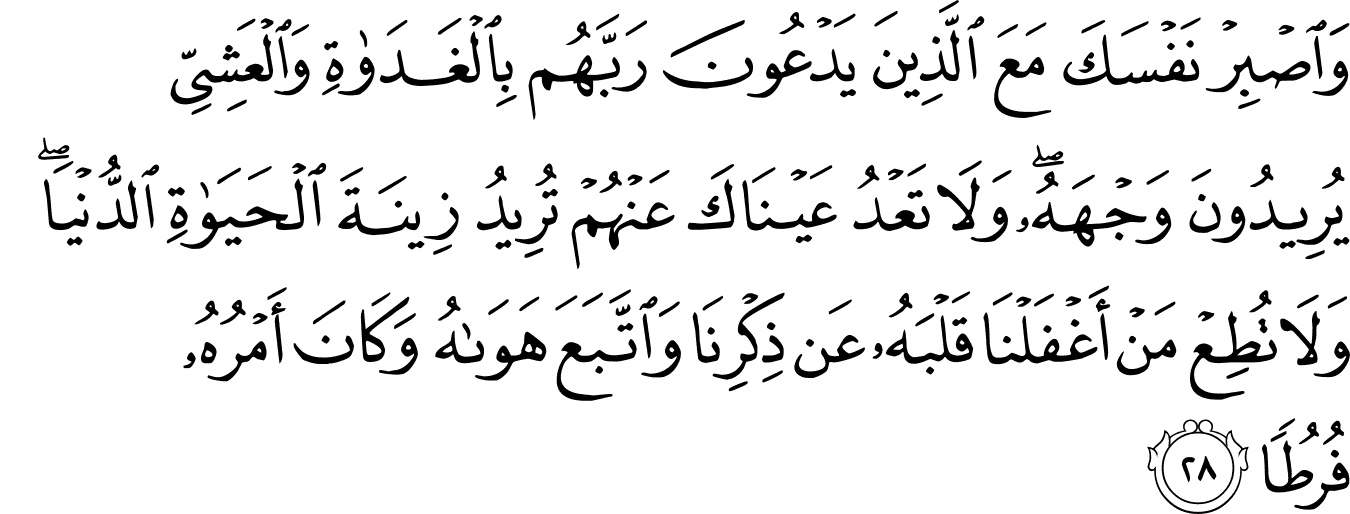 وَٱصْبِرْ نَفْسَكَ مَعَ ٱلَّذِينَ يَدْعُونَ رَبَّهُم بِٱلْغَدَوٰةِ وَٱلْعَشِىِّ
يُرِيدُونَ وَجْهَهُۥ ۖ وَلَا تَعْدُ عَيْنَاكَ عَنْهُمْ تُرِيدُ زِينَةَ ٱلْحَيَوٰةِ ٱلدُّنْيَا ۖ
وَلَا تُطِعْ مَنْ أَغْفَلْنَا قَلْبَهُۥ عَن ذِكْرِنَا وَٱتَّبَعَ هَوَىٰهُ وَكَانَ أَمْرُهُۥ
فُرُطًا ٢٨